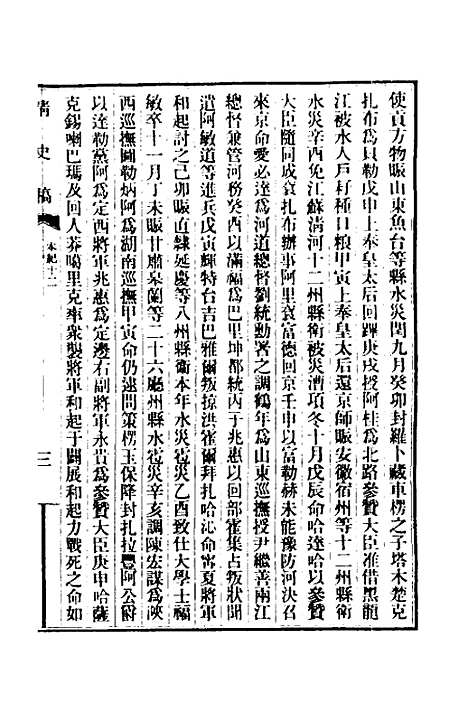 使貢方物賑山東魚台等縣水災閏九月癸卯封羅卜藏車楞之子塔木楚克
扎布爲貝勒戊申上奉皇太后回蹕庚戌授阿桂爲北路參贊大臣准借黑龍
江被水人戶籽種口糧甲寅上奉皇太后還京師賑安徽宿州等十二州縣衛
水災辛酉免江蘇清河十二州縣衛被災漕項冬十月戊辰命哈達哈以參贊
大臣隨同成袞扎布辦事阿里袞富德回京壬申以富勒赫未能豫防河決召
來京命愛必達爲河道總督劉統勳署之調鶴年爲山東巡撫授尹繼善兩江
總督兼管河務癸酉以滿福爲巴里坤都統丙子兆惠以回部霍集占叛狀聞
遣阿敏道等進兵戊寅輝特台吉巴雅爾叛掠洪霍爾拜扎哈沁命甯夏將軍
和起討之己卯賑直隸延慶等八州縣衛本年水災雹災乙酉致仕大學士福
敏卒十一月丁未賑甘肅皋蘭等二十六廳州縣水雹災辛亥調陳宏謀爲陝
西巡撫圖勒炳阿爲湖南巡撫甲寅命仍逮問策楞玉保降封扎拉豐阿公爵
以達勒黨阿爲定西將軍兆惠爲定邊右副將軍永貴爲參贊大臣庚申哈薩
克錫喇巴瑪及回人莽噶里克率衆襲將軍和起于闢展和起力戰死之命如
清史稿
本紀十二
三